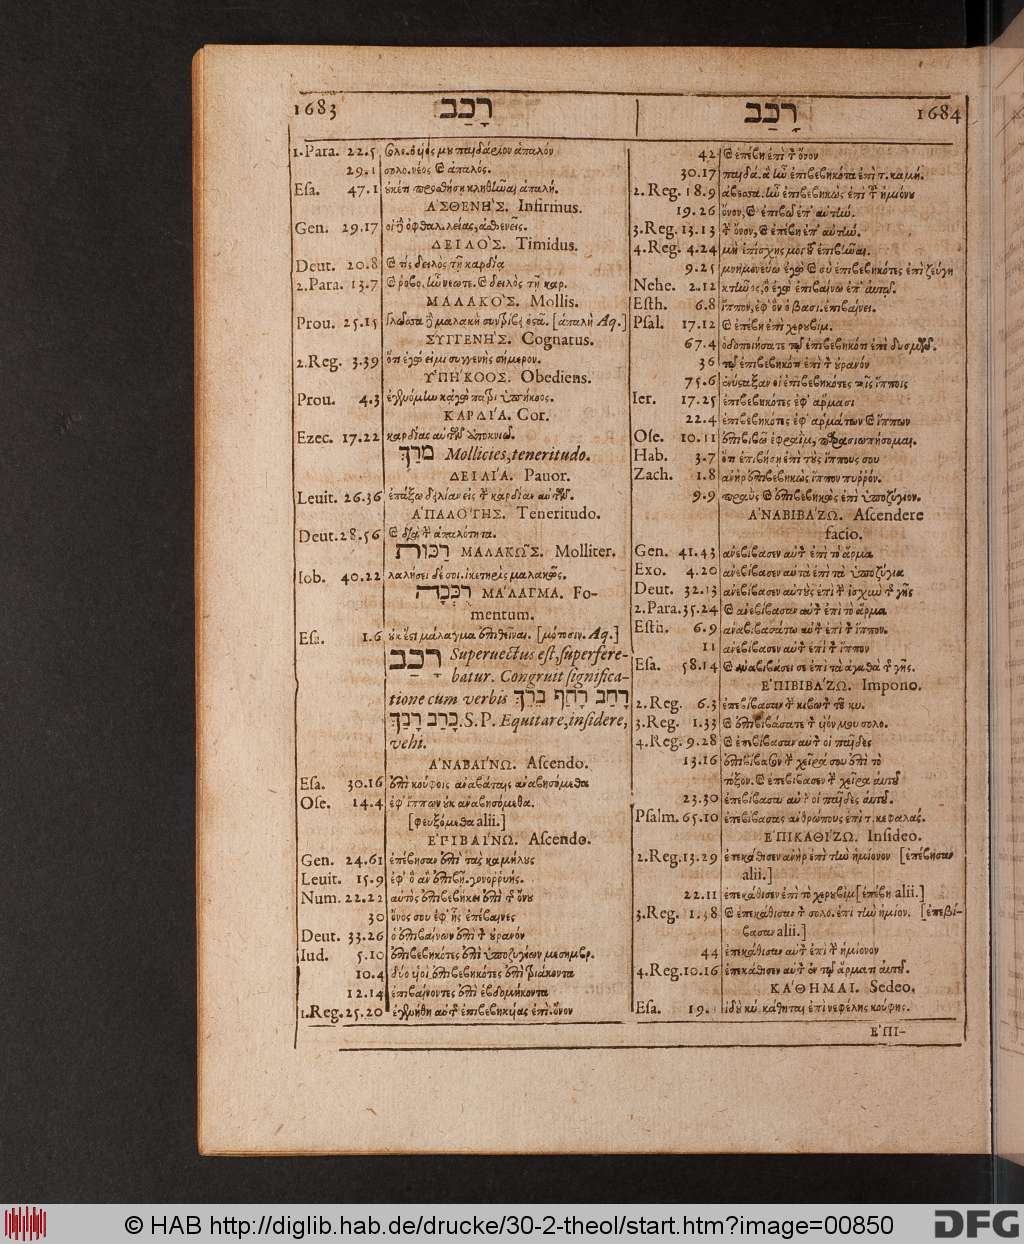 1683 רָכַב
1.Para. 22.5 μου παιδάριον ἁπαλόν
29.1 νέος καὶ ἁπαλός.
Esa. 47.1 οὐκέτι προσθήσῃ κληθῶαι ἁπαλή.
ἈΣΘΕΝΗΣ. Infirmus.
Gen. 29.17 οἱ ὀφθαλ. λείας, ἀσθενεῖς.
ΔΕΙΛΟΣ. Timidus.
Deut. 20.8 καὶ τίς δειλὸς τῇ καρδίᾳ
2.Para. 13.7 καὶ ροβο. ἦν νεωτε. καὶ δειλὸς τῇ καρ.
ΜΑΛΑΚΟΣ. Mollis.
Prou. 25.15 γλῶσσα μαλακὴ συντρίβει ὀστᾶ. [ἁπαλὴ Aq.]
ΣΥΓΓΕΝΗΣ. Cognatus.
2.Reg. 3.39 ὅτι ἐγώ εἰμι συγγενὴς σήμερον.
ὙΠΗΚΟΟΣ. Obediens.
Prou. 4.3 ἐγενόμην κἀγὼ πατρὶ ὑπήκοος.
ΚΑΡΔΙΑ. Cor.
Ezec. 17.22 καρδίας αὐτῶν ἀποκνιῶ.
מֹרֶךְ Mollicies, teneritudo.
ΔΕΙΛΙΑ. Pauor.
Leuit. 26.36 ἐπάξω δειλίαν εἰς τὴν καρδίαν αὐτῶν.
ἉΠΑΛΟΤΗΣ. Teneritudo.
Deut. 28.56 καὶ διὰ τὴν ἁπαλότητα.
רכות ΜΑΛΑΚΩΣ. Molliter.
Iob. 40.22 λαλήσει δέ σοι. ἱκετηρίας μαλακῶς.
רְכְּכָה ΜΑΛΑΓΜΑ. Fo-
mentum.
Esa. 1.6 οὐκ ἔστι μάλαγμα ἐπιθεῖναι. [μότωσιν. Aq.]
רכב Superuectus est, superfere-
batur. Congruit significa-
tione cum verbis רָחַב רָחַף בָּרַךְ
כָּרַב רָבַךְ. S.P. Equitare, insidere,
vehi.
ἈΝΑΒΑΙΝΩ. Ascendo.
Esa. 30.16 ἐπὶ κούφοις ἀναβάταις ἀναβησόμεθα
Ose. 14.4 ἐφ' ἵππων οὐκ ἀναβησόμεθα.
[φευξόμεθα alii.]
ἘΠΙΒΑΙΝΩ. Ascendo.
Gen. 24.61 ἐπέβησαν ἐπὶ τὰς καμήλους
Leuit. 15.9 ἐφ' ὃ ἂν ἐπιβῇ. γονορρυής.
Num. 22.22 αὐτὸς ἐπιβεβήκει ἐπὶ τῆς ὄνου
30 ὄνος σου ἐφ' ἧς ἐπέβαινες
Deut. 33.26 ὁ ἐπιβαίνων ἐπὶ τὸν οὐρανόν
Iud. 5.10 ἐπιβεβηκότες ἐπὶ ὑποζυγίων μεσημβρ.
10.4 δύο υἱοὶ ἐπιβεβηκότες ἐπὶ τριάκοντα
12.14 ἐπιβαίνοντες ἐπὶ ἑβδομήκοντα
1.Reg. 25.20 ἐγενήθη αὐτῆς ἐπιβεβηκυίας ἐπὶ. ὄνον
רָכַב 1684
42 καὶ ἐπέβη ἐπὶ τὴν ὄνον
30.17 παιδά. ἃ ἦν ἐπιβεβηκότα ἐπὶ τ. καμή.
2.Reg. 18.9 ἀβεσσα. ἦν ἐπιβεβηκὼς ἐπὶ τῆς ἡμιόνου
19.26 ὄνον, καὶ ἐπιβῶ ἐπ' αὐτήν.
3.Reg. 13.13 τὴν ὄνον, καὶ ἐπέβη ἐπ' αὐτήν.
4.Reg. 4.24 μὴ ἐπίσχῃς μοι τοῦ ἐπιβῆναι.
9.25 μνημονεύω ἐγὼ καὶ σὺ ἐπιβεβηκότες ἐπὶ ζεύγη
Nehe. 2.12 κτῆνος, ὃ ἐγὼ ἐπιβαίνω ἐπ' αὐτοῦ.
Esth. 6.8 ἵππον, ἐφ' ὃν ὁ βασι. ἐπιβαίνει.
Psal. 17.12 καὶ ἐπέβη ἐπὶ χερουβίμ.
67.4 ὁδοποιήσατε τῷ ἐπιβεβηκότι ἐπὶ δυσμῶν.
36 τῷ ἐπιβεβηκότι ἐπὶ τὸν οὐρανόν
75.6 ἐνύσταξαν οἱ ἐπιβεβηκότες τοῖς ἵπποις
Ier. 17.25 ἐπιβεβηκότες ἐφ' ἅρμασι
22.4 ἐπιβεβηκότες ἐφ' ἁρμάτων καὶ ἵππων
Ose. 10.11 ἐπιβιβῶ ἐφραὶμ, παρασιωπήσομαι.
Hab. 3.7 ὅτι ἐπιβήσῃ ἐπὶ τοὺς ἵππους σου
Zach. 1.8 ἀνὴρ ἐπιβεβηκὼς ἵππον πυρρόν.
9.9 πραῢς καὶ ἐπιβεβηκὼς ἐπὶ ὑποζύγιον.
ἈΝΑΒΙΒΑΖΩ. Ascendere
facio.
Gen. 41.43 ἀνεβίβασεν αὐτὸν ἐπὶ τὸ ἅρμα
Exo. 4.20 ἀνεβίβασεν αὐτὰ ἐπὶ τὰ ὑποζύγια
Deut. 32.13 ἀνεβίβασεν αὐτοὺς ἐπὶ τὴν ἰσχὺν τῆς γῆς
2.Para. 35.24 καὶ ἀνεβίβασαν αὐτὸν ἐπὶ τὸ ἅρμα
Esth. 6.9 ἀναβιβασάτω αὐτὸν ἐπὶ τὸν ἵππον.
11 ἀνεβίβασεν αὐτὸν ἐπὶ τὸν ἵππον
Esa. 58.14 καὶ ἀναβιβάσει σε ἐπὶ τὰ ἀγαθὰ τῆς γῆς.
ἘΠΙΒΙΒΑΖΩ. Impono.
2.Reg. 6.3 ἐπεβίβασαν τὴν κιβωτὸν τοῦ κυ.
3.Reg. 1.33 καὶ ἐπιβιβάσατε τὸν υἱόν μου σολο.
4.Reg. 9.28 καὶ ἐπεβίβασαν αὐτὸν οἱ παῖδες
13.16 ἐπιβίβασον τὴν χεῖρά σου ἐπὶ τὸ
τόξον. καὶ ἐπεβίβασεν τὴν χεῖρα αὐτοῦ
23.30 ἐπεβίβασαν αὐτὸν οἱ παῖδες αὐτοῦ.
Psalm. 65.10 ἐπεβίβασας ἀνθρώπους ἐπὶ τ. κεφαλάς.
ἘΠΙΚΑΘΙΖΩ. Insideo.
2.Reg. 13.29 ἐπεκάθισεν ἀνὴρ ἐπὶ τὴν ἡμίονον [ἐπέβησαν
alii.]
22.11 ἐπεκάθισεν ἐπὶ τὸ χερουβὶμ [ἐπέβη alii.]
3.Reg. 1.38 καὶ ἐπεκάθισαν τὸν σολο. ἐπὶ τὴν ἡμίον. [ἐπεβί-
βασαν alii.]
44 ἐπεκάθισαν αὐτὸν ἐπὶ τὴν ἡμίονον
4.Reg. 10.16 ἐπεκάθισεν αὐτὸν ἐν τῷ ἅρματι αὐτοῦ.
ΚΑΘΗΜΑΙ. Sedeo.
Esa. 19.1 ἰδοὺ κύ. κάθηται ἐπὶ νεφέλης κούφης.
ἘΠΙ-
© HAB http://diglib.hab.de/drucke/30-2-theol/start.htm?image=00850
DFG